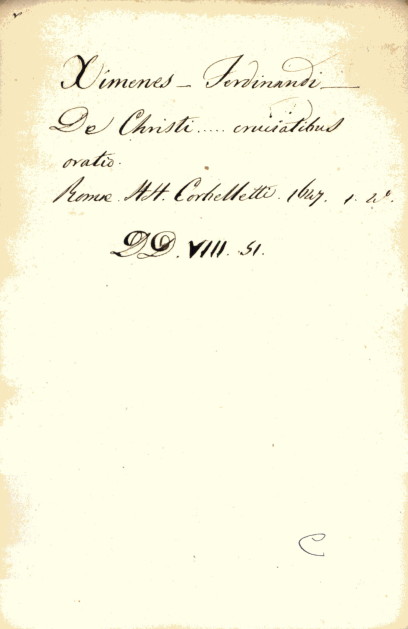 Ximenes – Ferdinandi –
De Christi ..... cruciatibus
oratio.
Romæ. HH. Corbelletti. 1647. 1. 4°.
DD. VIII. 51.
C